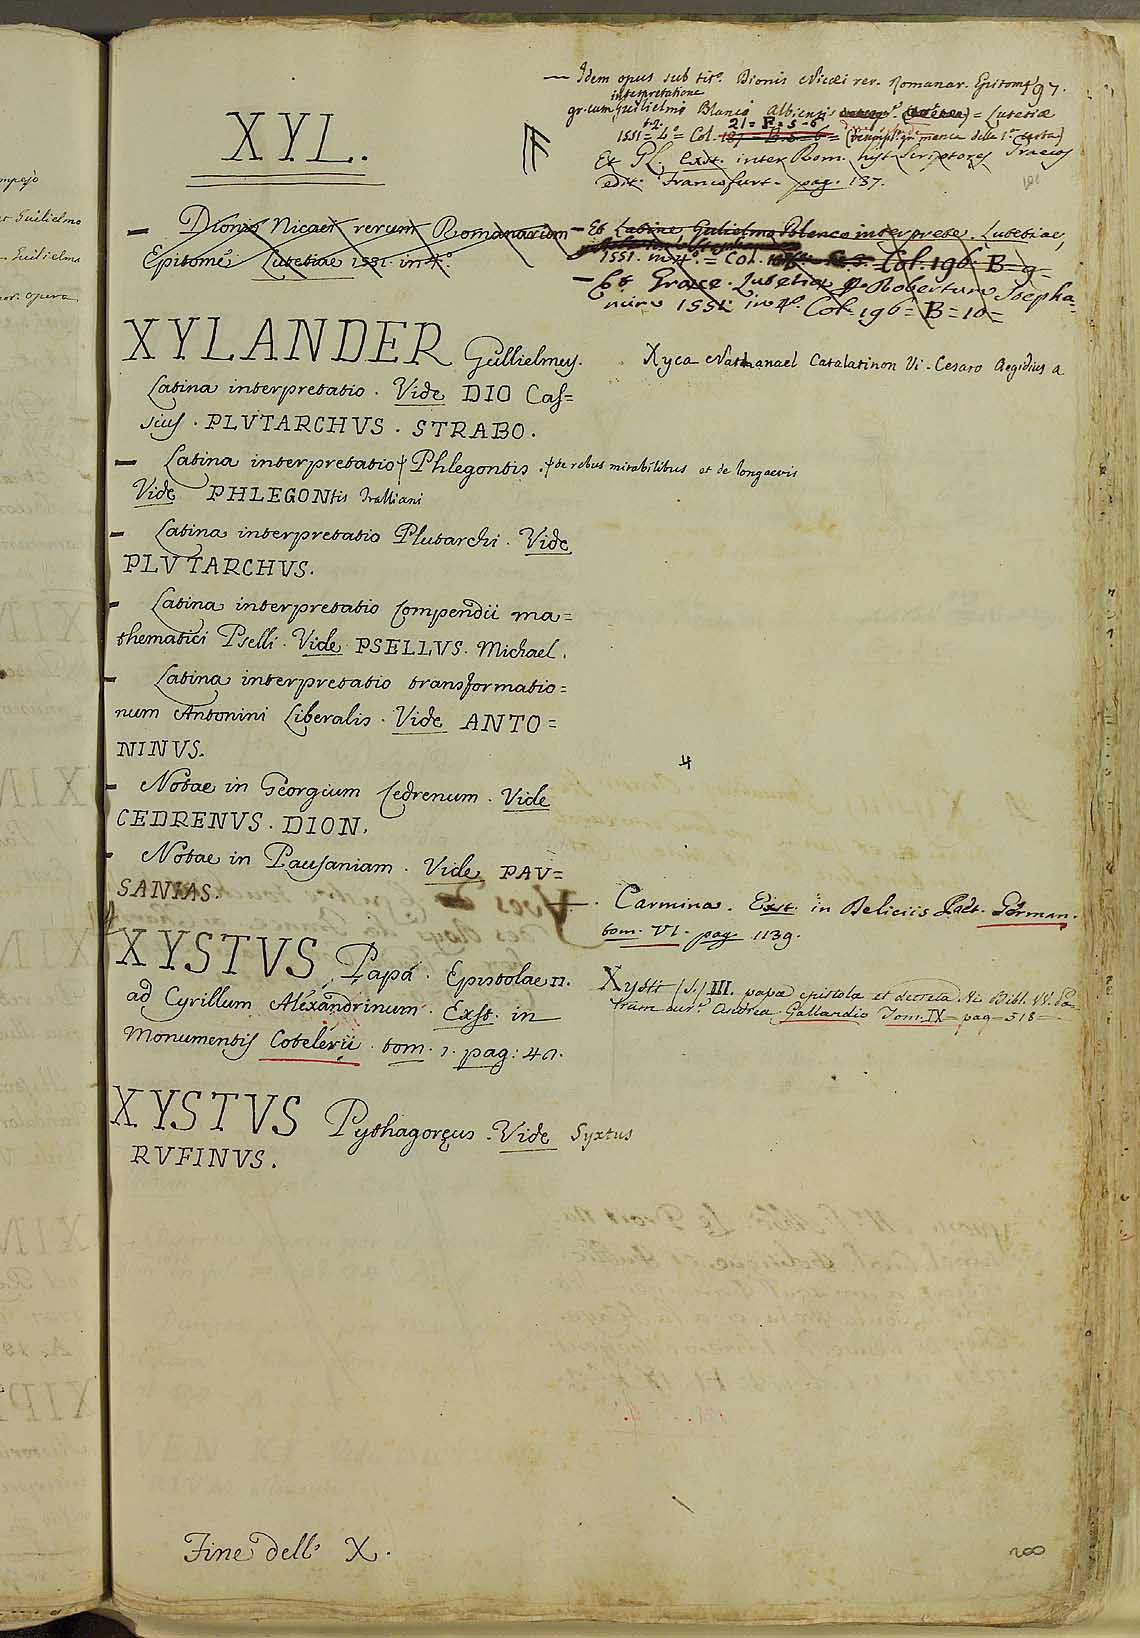 XYL.
— Idem opus sub tito. Dionis Nicæi rer. Romanar. Epitome 97.
interpretatione
gr. cum Guilielmo Blanco Albiensis = Lutetiæ
t. 2. 21 = F = 5 - 6
1551 = 4o = Col.
Et GL. Exst. inter Rom. hist. Scriptores Graecos
edit. Francofurt. pag. 137.
— Dionis Nicaei rerum Romanarum
Epitome Lutetiae 1551. in 4o.
— Et Latine Gulielmo Blanco interprete. Lutetiae,
1551. in 4o. = Col. Col. 196 B = 9 =
— Et Graece. Lutetiæ ap Robertum Stepha=
num 1551. in 4o. Col = 196 = B = 10 =
XYLANDER Gullielmus.
Latina interpretatio. Vide DIO Cas=
sius. PLVTARCHVS. STRABO.
Xyca Nathanael Catalatinon Vi - Cesaro Aegidius a
— Latina interpretatio Phlegontis. de rebus mirabilibus et de longaevis
Vide PHLEGONtis Tralliani
— Latina interpretatio Plutarchi. Vide
PLVTARCHVS.
— Latina interpretatio Compendii ma=
thematici Pselli. Vide PSELLVS. Michael.
— Latina interpretatio transformatio=
num Antonini Liberalis. Vide ANTO=
NINVS.
— Notae in Georgium Cedrenum. Vide
CEDRENVS. DION.
— Notae in Pausaniam. Vide PAV=
SANIAS.
— Carmina. Exst. in Deliciis Poët. German.
tom. VI. pag. 1139.
XYSTVS Papa. Epistolae II.
ad Cyrillum Alexandrinum. Exst. in
Monumentis Cotelerii. tom. 1. pag: 42.
Xysti (S.) III. papæ epistolæ et decreta. In Bibl. VV. Pa=
trum cur. Andrea Gallandio Tom. IX — pag — 518 —
XYSTVS Pythagoreus. Vide Syxtus
RVFINVS.
Fine dell' X.
200